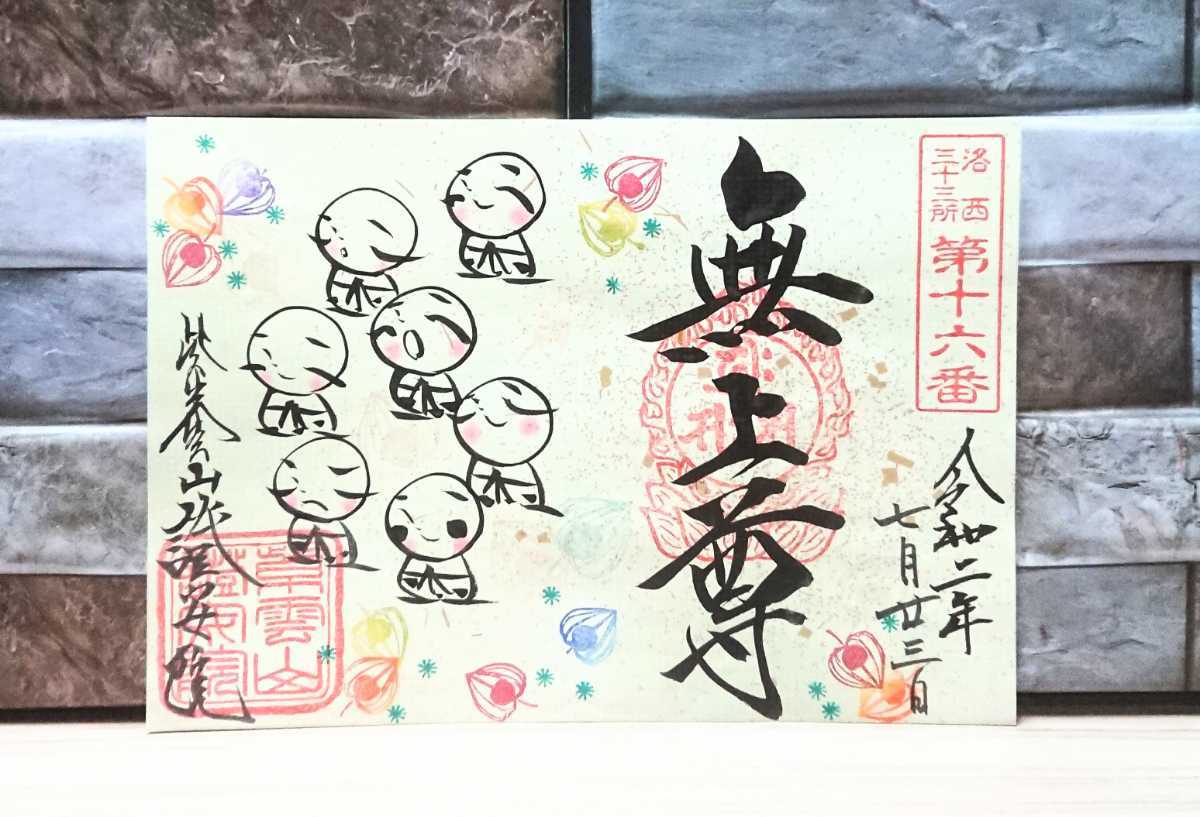 洛西
三十三所
第十六番
令和二年
七月廿三日
無上尊
紫雲山
證安院
紫雲山
證安院